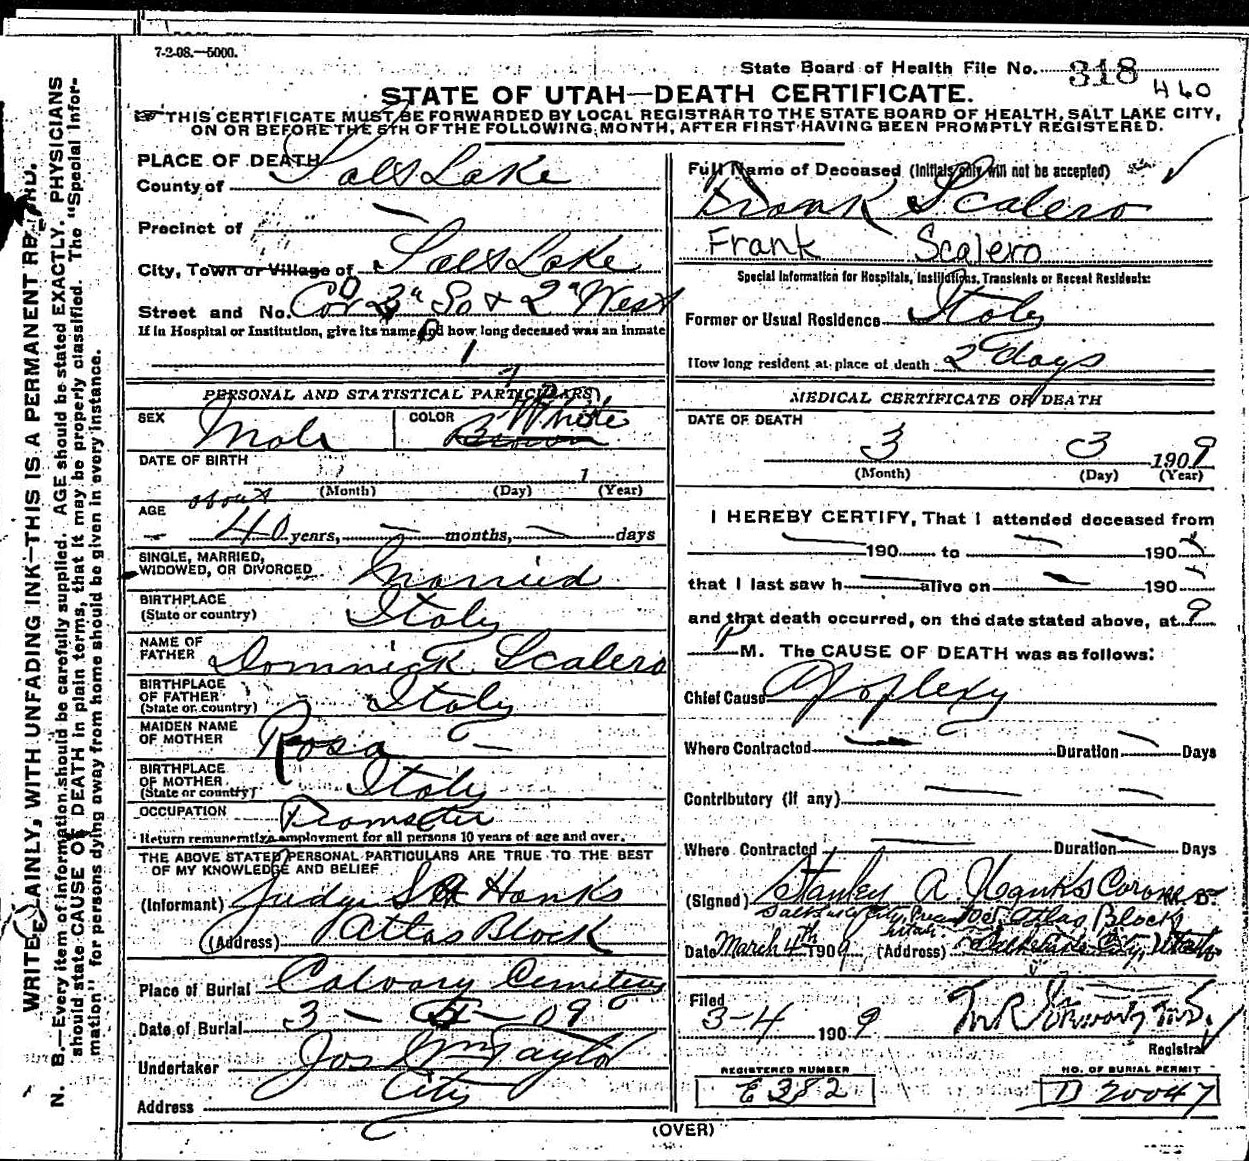 7-2-08.—5000.
State Board of Health File No. 318
460
STATE OF UTAH—DEATH CERTIFICATE.
THIS CERTIFICATE MUST BE FORWARDED BY LOCAL REGISTRAR TO THE STATE BOARD OF HEALTH, SALT LAKE CITY,
ON OR BEFORE THE 5TH OF THE FOLLOWING MONTH, AFTER FIRST HAVING BEEN PROMPTLY REGISTERED.
PLACE OF DEATH
County of Salt Lake
Precinct of —
City, Town or Village of Salt Lake
Street and No. Cor 2d So & 2d West
If in Hospital or Institution, give its name and how long deceased was an inmate
PERSONAL AND STATISTICAL PARTICULARS
SEX Male COLOR Brown White
DATE OF BIRTH
(Month) (Day) 1 (Year)
AGE about 40 years, — months, — days
SINGLE, MARRIED,
WIDOWED, OR DIVORCED Married
BIRTHPLACE
(State or country) Italy
NAME OF
FATHER Domnick Scalero
BIRTHPLACE
OF FATHER
(State or country) Italy
MAIDEN NAME
OF MOTHER Rosa —
BIRTHPLACE
OF MOTHER
(State or country) Italy
OCCUPATION Promoter
Return remunerative employment for all persons 10 years of age and over.
THE ABOVE STATED PERSONAL PARTICULARS ARE TRUE TO THE BEST
OF MY KNOWLEDGE AND BELIEF
(Informant) Judge S A Hanks
(Address) Atlas Block
Place of Burial Calvary Cemetery
Date of Burial 3 — 5 — 09
Undertaker Jos Wm Taylor
Address City
Full Name of Deceased (Initials only will not be accepted)
Frank Scalero
Frank Scalero
Special Information for Hospitals, Institutions, Transients or Recent Residents:
Former or Usual Residence Italy
How long resident at place of death 2 days
MEDICAL CERTIFICATE OF DEATH
DATE OF DEATH
3 3 1909
(Month) (Day) (Year)
I HEREBY CERTIFY, That I attended deceased from
— 190 to — 190
that I last saw h — alive on — 190
and that death occurred, on the date stated above, at 9
P M. The CAUSE OF DEATH was as follows:
Chief Cause Apoplexy
Where Contracted — Duration — Days
Contributory (if any) — —
Where Contracted — Duration — Days
(Signed) Stanley A. Hanks Coroner
Salt Lake City Precinct Atlas Block
Date March 4th 1909 (Address) Salt Lake City, Utah
Filed
3-4 1909
Registrar
REGISTERED NUMBER
E 382
NO. OF BURIAL PERMIT
D 20047
(OVER)
WRITE PLAINLY, WITH UNFADING INK—THIS IS A PERMANENT RECORD.
N. B.—Every item of information should be carefully supplied. AGE should be stated EXACTLY. PHYSICIANS
should state CAUSE OF DEATH in plain terms, that it may be properly classified. The "Special Infor-
mation" for persons dying away from home should be given in every instance.